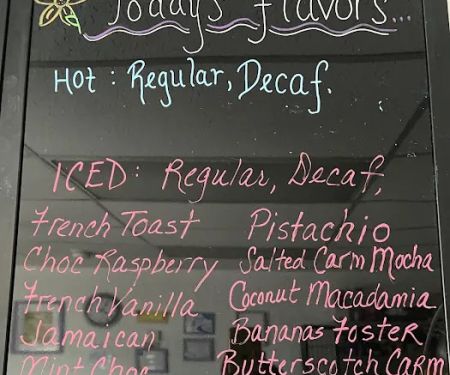 Today's flavors...
Hot: Regular, Decaf.
ICED: Regular, Decaf,
French Toast Pistachio
Choc Raspberry Salted Carm Mocha
French Vanilla Coconut Macadamia
Jamaican Bananas Foster
Mint Choc Butterscotch Carm